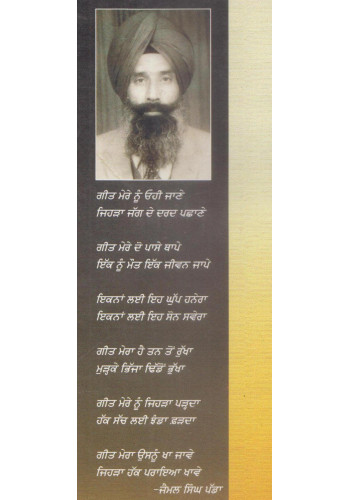 ਗੀਤ ਮੇਰੇ ਨੂੰ ਓਹੀ ਜਾਣੇ
ਜਿਹੜਾ ਜੱਗ ਦੇ ਦਰਦ ਪਛਾਣੇ
ਗੀਤ ਮੇਰੇ ਦੋ ਪਾਸੇ ਥਾਪੇ
ਇੱਕ ਨੂੰ ਮੌਤ ਇੱਕ ਜੀਵਨ ਜਾਪੇ
ਇਕਨਾਂ ਲਈ ਇਹ ਘੁੱਪ ਹਨੇਰਾ
ਇਕਨਾਂ ਲਈ ਇਹ ਸੋਨ ਸਵੇਰਾ
ਗੀਤ ਮੇਰਾ ਹੈ ਤਨ ਤੋਂ ਰੁੱਖਾ
ਮੁੜ੍ਹਕੇ ਭਿੱਜਾ ਢਿੱਡੋਂ ਭੁੱਖਾ
ਗੀਤ ਮੇਰੇ ਨੂੰ ਜਿਹੜਾ ਪੜ੍ਹਦਾ
ਹੱਕ ਸੱਚ ਲਈ ਝੰਡਾ ਫ਼ੜਦਾ
ਗੀਤ ਮੇਰਾ ਉਸਨੂੰ ਖਾ ਜਾਵੇ
ਜਿਹੜਾ ਹੱਕ ਪਰਾਇਆ ਖਾਵੇ
-ਜੈਮਲ ਸਿੰਘ ਪੱਡਾ